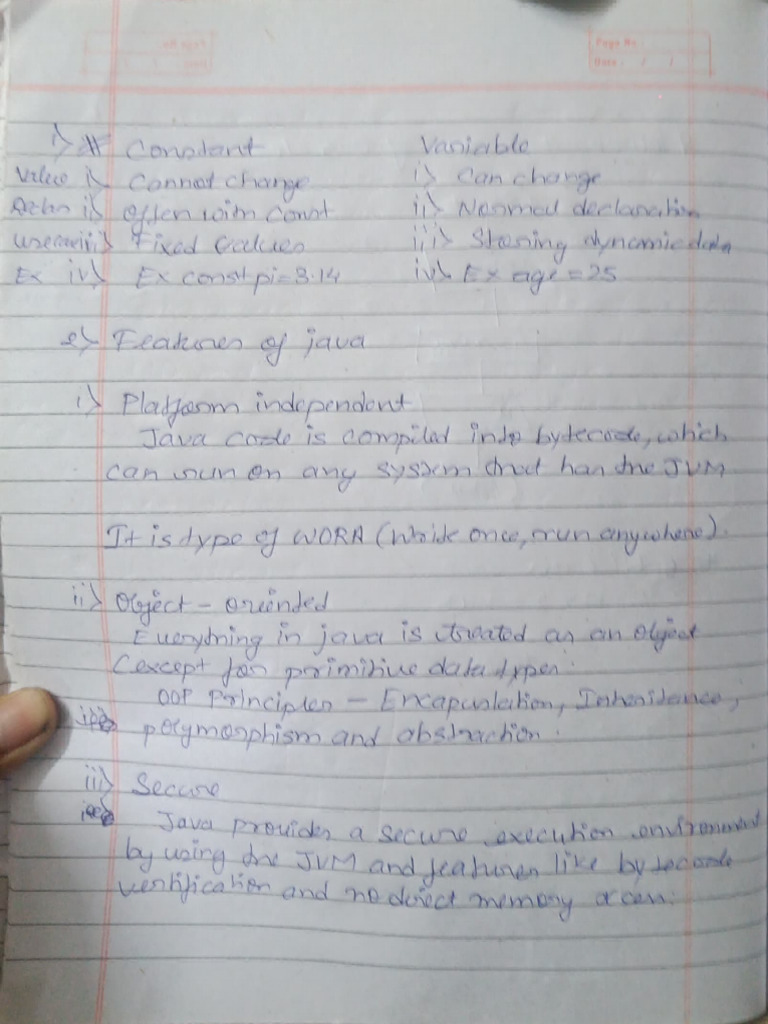 Page No.
Date: / /
1) # Constant Variable
Value i) Cannot change i) Can change
ii) Often with Const ii) Normal declaration
iii) Fixed values iii) Storing dynamic data
Ex iv) Ex const pi=3.14 iv) Ex age=25
2) Features of java
i) Platform independent
Java code is compiled into bytecode, which
can run on any system that has the JVM
It is type of WORA (Write once, run anywhere).
ii) Object - oriented
Everything in java is treated as an object
(except for primitive data types.
OOP Principles - Encapsulation, Inheritance,
polymorphism and abstraction.
iii) Secure
Java provides a secure execution environment
by using the JVM and features like bytecode
verification and no direct memory access.